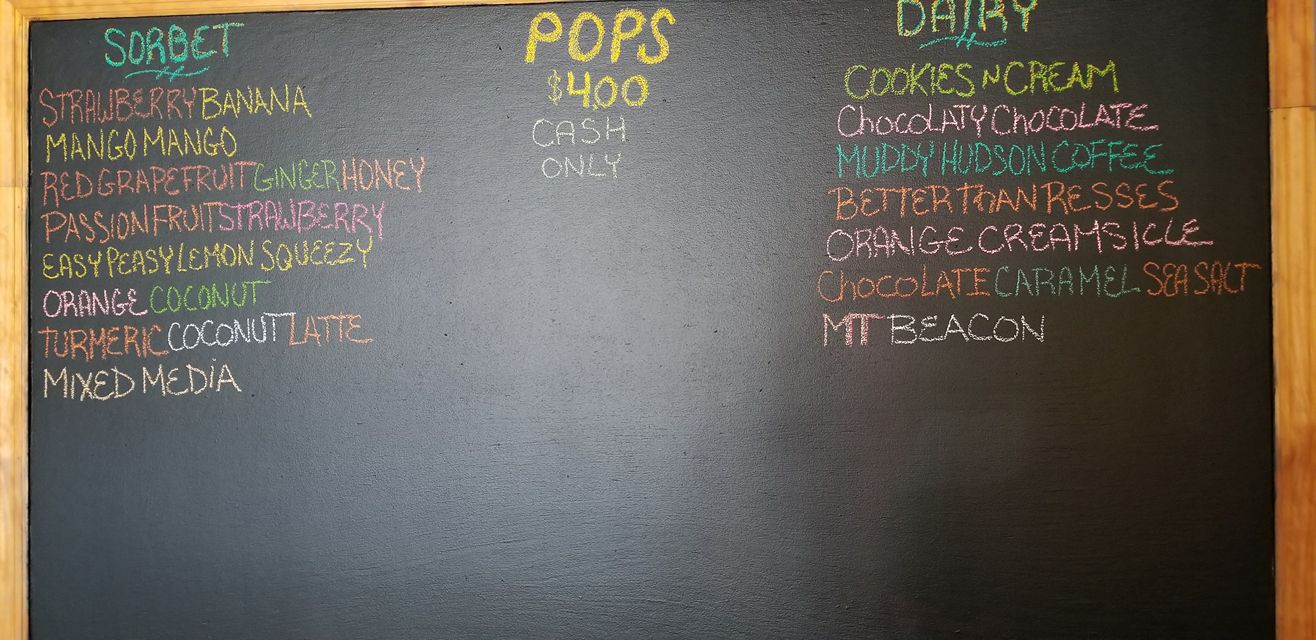 SORBET
STRAWBERRY BANANA
MANGO MANGO
RED GRAPEFRUIT GINGER HONEY
PASSION FRUIT STRAWBERRY
EASY PEASY LEMON SQUEEZY
ORANGE COCONUT
TURMERIC COCONUT LATTE
MIXED MEDiA
POPS
$4.00
CASH
ONLY
DAIRY
COOKIES N CREAM
ChocoLATY ChocoLATE
MUDDY HUDSON COFFEE
BETTER ThAN RESSES
ORANGE CREAMSICLE
ChocoLATE CARAMEL SEA SALT
MT BEACON